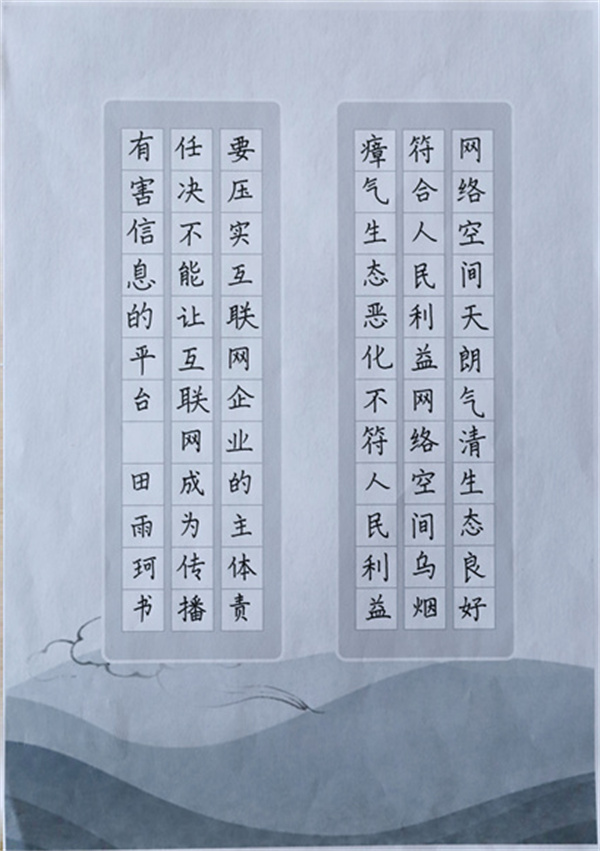 网络空间天朗气清生态良好
符合人民利益网络空间乌烟
瘴气生态恶化不符人民利益
要压实互联网企业的主体责
任决不能让互联网成为传播
有害信息的平台 田雨珂书